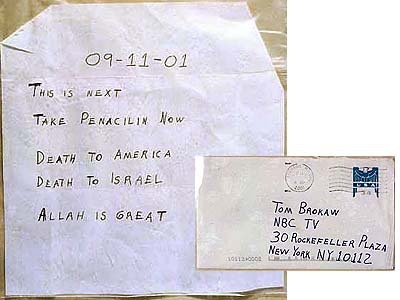 09-11-01
THIS IS NEXT
TAKE PENACILIN NOW
DEATH TO AMERICA
DEATH TO ISRAEL
ALLAH IS GREAT
TOM BROKAW
NBC TV
30 ROCKEFELLER PLAZA
NEW YORK NY 10112